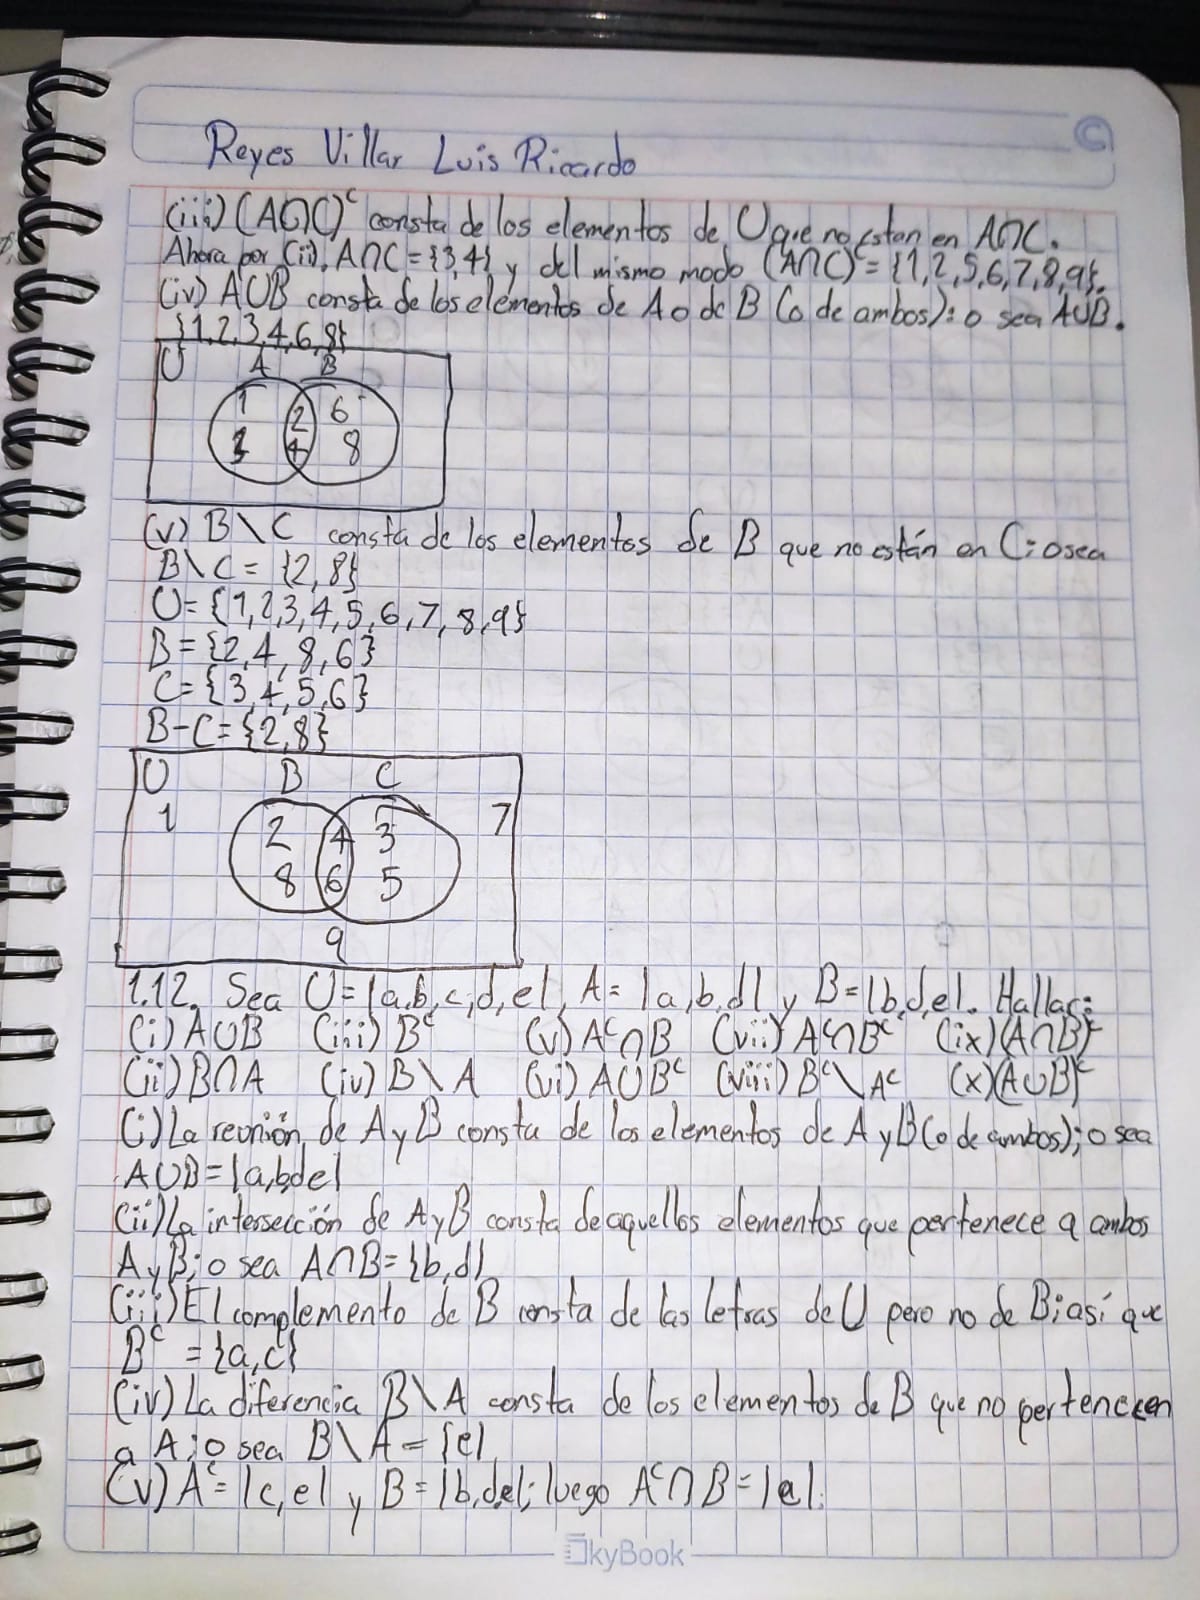 Reyes Villar Luis Ricardo
(iii) (A∩C)ᶜ consta de los elementos de U que no estan en A∩C.
Ahora por (ii), A∩C = {3,4} y del mismo modo (A∩C)ᶜ = {1,2,5,6,7,8,9}.
(iv) A∪B consta de los elementos de A o de B (o de ambos): o sea A∪B.
{1,2,3,4,6,8}
U A B
1 2 6
3 4 8
(v) B\C consta de los elementos de B que no están en C; osea
B\C = {2,8}
U = {1,2,3,4,5,6,7,8,9}
B = {2,4,8,6}
C = {3,4,5,6}
B-C = {2,8}
U B C
1 2 4 3 7
8 6 5
9
1.12. Sea U = |a,b,c,d,e|, A = |a,b,d| y B = |b,d,e|. Hallar:
(i) A∪B (iii) Bᶜ (v) Aᶜ∩B (vii) Aᶜ∩Bᶜ (ix) (A∩B)ᶜ
(ii) B∩A (iv) B\A (vi) A∪Bᶜ (viii) Bᶜ\Aᶜ (x) (A∪B)ᶜ
(i) La reunión de A y B consta de los elementos de A y B (o de ambos); o sea
A∪B = |a,b,de|
(ii) La intersección de A y B consta de aquellos elementos que pertenece a ambos
A y B; o sea A∩B = {b,d|
(iii) El complemento de B consta de las letras de U pero no de B; así que
Bᶜ = {a,c}
(iv) La diferencia B\A consta de los elementos de B que no pertenecen
a A; o sea B\A = {e|
(v) Aᶜ = |c,e| y B = |b,d,e|; luego Aᶜ∩B = |e|.
SkyBook